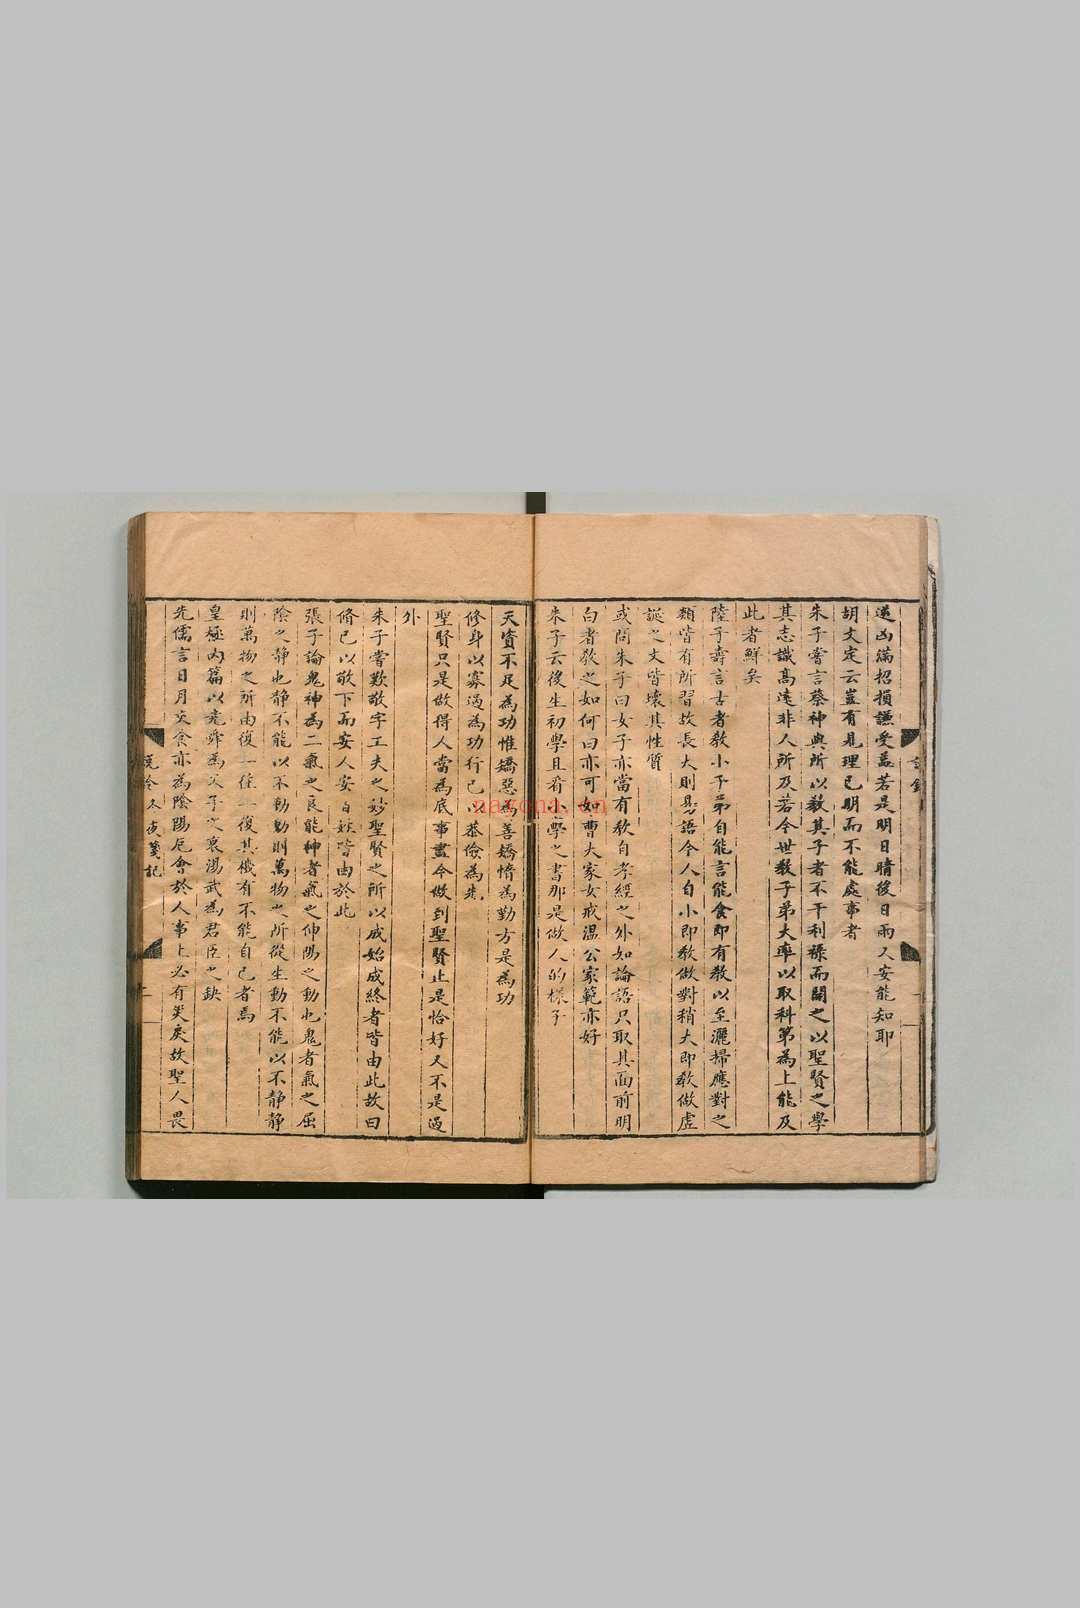 逆凶滿招損謙受益若是明日晴後日雨又安能知耶
胡文定云豈有見理已明而不能處事者
朱子嘗言蔡神與所以教其子者不干利祿而開之以聖賢之學
其志識高遠非人所及若今世教子弟大率以取科第為上能及
此者鮮矣
陸子壽言古者教小子弟自能言能食即有教以至灑掃應對之
類皆有所習故長大則易語今人自小即教做對稍大即教做虛
誕之文皆壞其性質
或問朱子曰女子亦當有教自孝經之外如論語只取其面前明
白者教之如何曰亦可如曹大家女戒溫公家範亦好
朱子云後生初學且看小學之書那是做人的樣子
天資不足為功惟矯惡為善矯惰為勤方是為功
修身以寡過為功行己以恭儉為先
聖賢只是做得人當為底事盡今做到聖賢止是恰好又不是過
外
朱子嘗歎敬字工夫之妙聖賢之所以成始成終者皆由此故曰
脩己以敬下面安人安百姓皆由於此
張子論鬼神為二氣之良能神者氣之伸陽之動也鬼者氣之屈
陰之靜也靜不能以不動動則萬物之所從生動不能以不靜靜
則萬物之所由復一往一復其機有不能自已者焉
皇極內篇以堯舜為父子之衰湯武為君臣之缺
先儒言日月交食亦為陰陽厄會於人事上必有災戾故聖人畏
冬夜箋記
naxona.cn